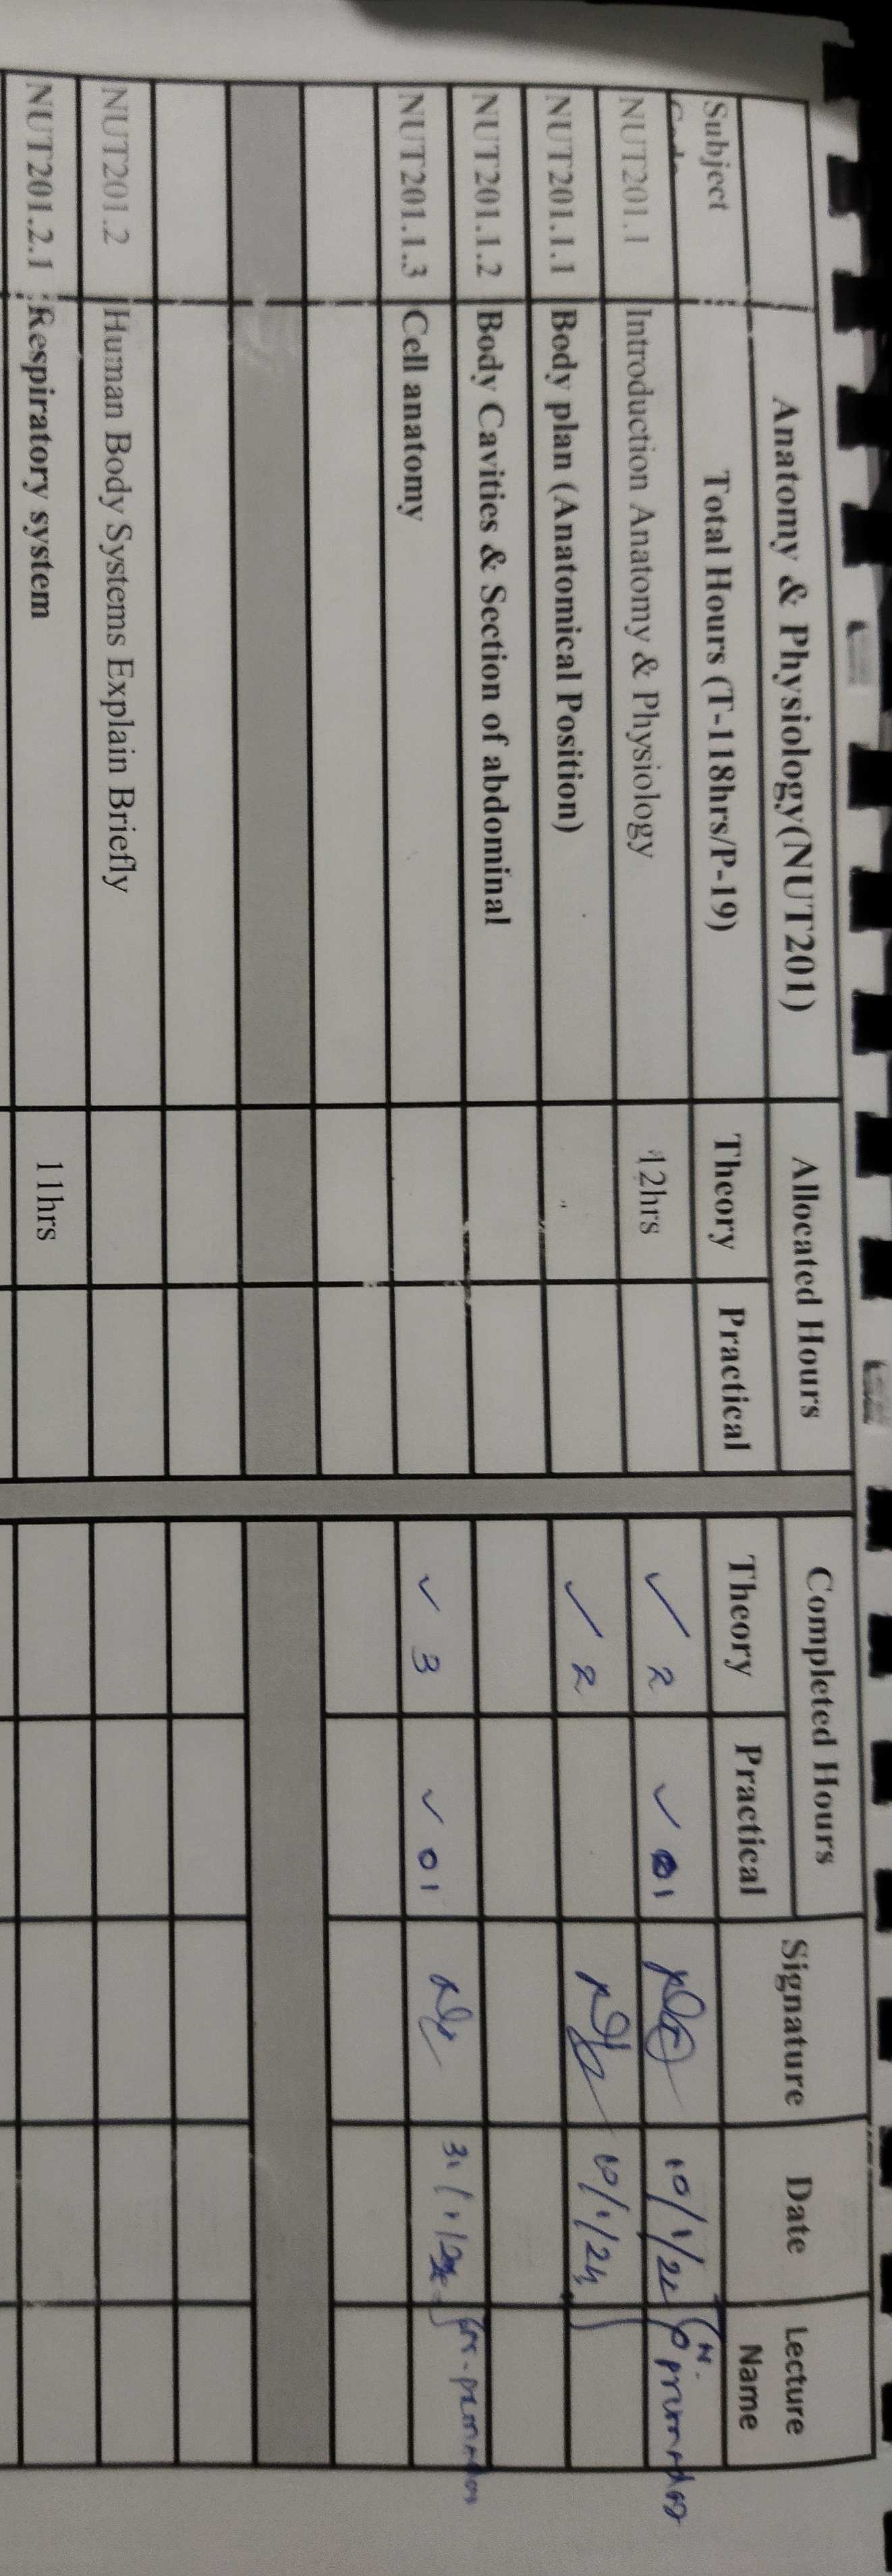 Anatomy & Physiology(NUT201) Allocated Hours Completed Hours Signature Date Lecture Name
Subject Total Hours (T-118hrs/P-19) Theory Practical Theory Practical
NUT201.1 Introduction Anatomy & Physiology 12hrs ✓ 2 ✓ 01 10/1/24
NUT201.1.1 Body plan (Anatomical Position) ✓ 2 10/1/24
NUT201.1.2 Body Cavities & Section of abdominal
NUT201.1.3 Cell anatomy ✓ 3 ✓ 01
NUT201.2 Human Body Systems Explain Briefly
NUT201.2.1 Respiratory system 11hrs